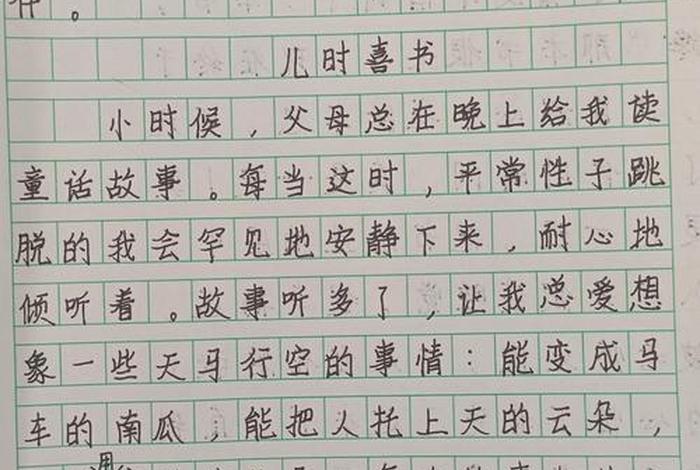 。
儿时喜书
小时候，父母总在晚上给我读
童话故事。每当这时，平常性子跳
脱的我会罕见地安静下来，耐心地
倾听着。故事听多了，让我总爱想
象一些天马行空的事情：能变成马
车的南瓜，能把人托上天的云朵，